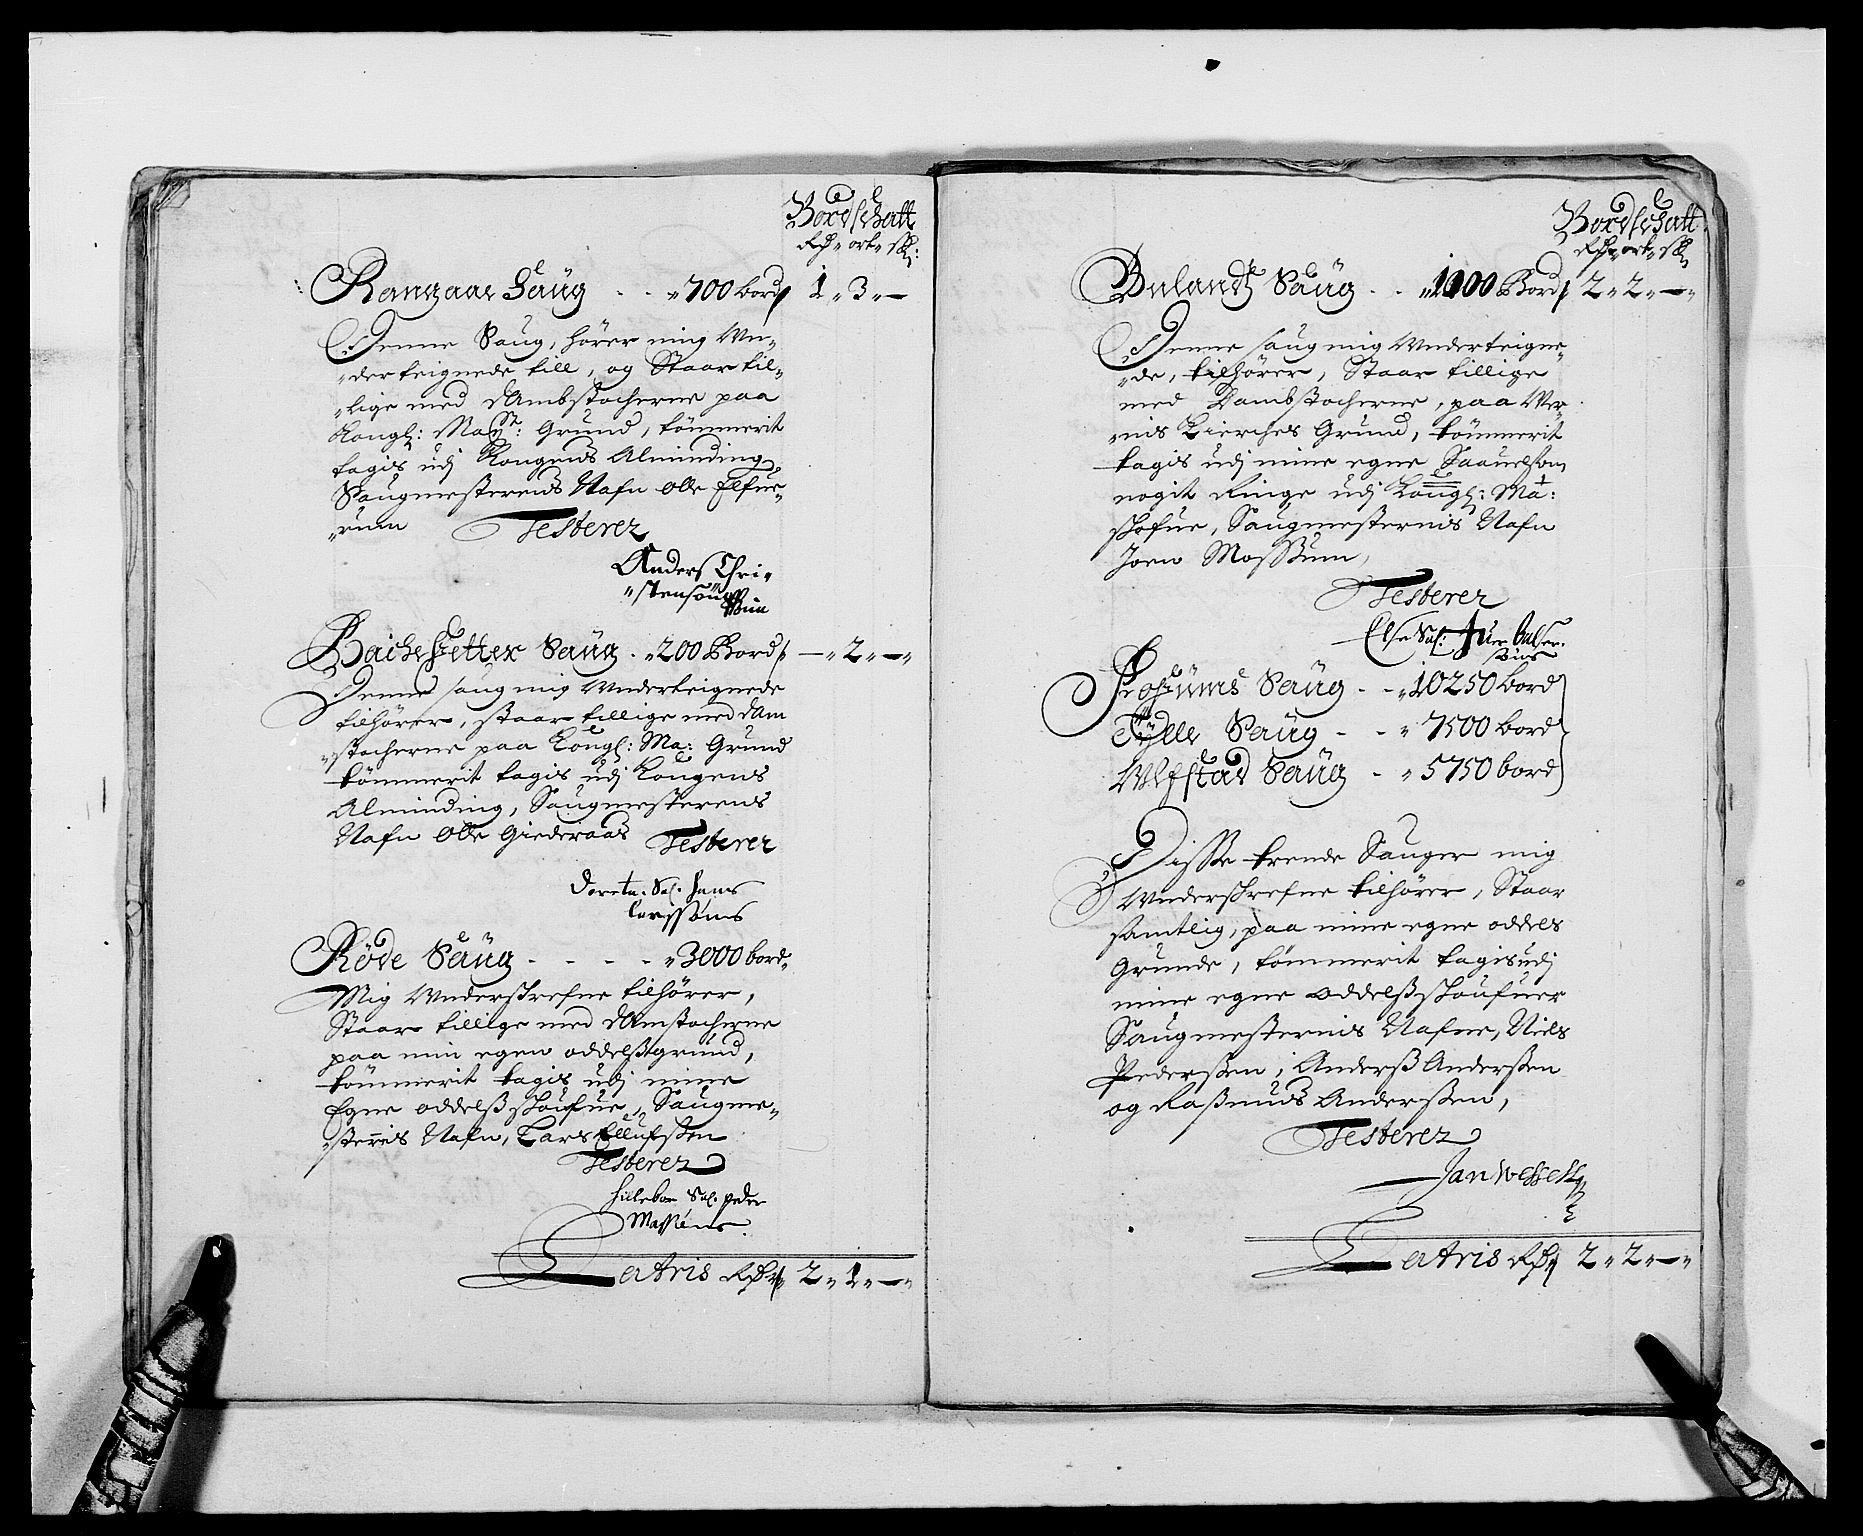 Bordschatt
Rdr ort sk:
Rangaae Saug - - 700 bord 1 - 3 -
Denne Saug, hører mig Un-
der teignede till, og Staar til-
lige med dAmbstocherne paa
Kongl: Maystt: Grund, tømmerit
tagis udj Kongens Alminding
Saugmesterens Nafn Olle Elfue-
rum Testerer
Anders Chri-
stensøn
Bache Setter Saug - 200 Bord - 2 -
Denne saug mig Underteignede
tilhører, staar tillige med dam
stocherne paa Kongl: Ma: Grund
tømmerit tagis udj Kongens
Alminding, Saugmesterens
Nafn Olle Giederaas Testerer
Doreta Sal. Jens
Larssøns
Røde Saug - - - - 3000 bord
Mig Underskrefne tilhører,
Staar tillige med dAmstocherne
paa min egen oddelß grund,
tømmerit tagis udj mine
Egne oddelß skoufue, Saugme-
sterris Nafn, Lars Ellufsen
Testerer
Hillebor Sal. Peder
Massøns
Lateris Rdr 2 - 1 -
Bordschatt
Rdr ort sk
Buland Saug - - 1000 Bord 2 - 2 -
Denne saug mig Underteigne-
de, tilhører, Staar tillige
med Dambstocherne, paa Wer-
nis Kierches Grund, tømmerit
tagis udj mine egne Saauelsom
nogit Ringe udj Kongl: Ma:
skofue, Saugmesternis Nafn
Joen Mossum,
Testerer
Else Sal: Iuer Balser-
søns
Foßums Saug - - 10250 bord
Tylle Saug - - 7500 bord
Ulfstad Saug - - 5750 bord
Disse trende Sauger mig
Underskrefne tilhører, Staar
samtlig, paa mine egne oddels
Grunde, tømmerit tagis udj
mine egne oddelß skoufuer
Saugmesternis Nafne, Niels
Pederßen, Anderß Anderßen
og Raßmus Anderßen,
Testerer
Jan Wessell
Lateris Rdr 2 - 2 -